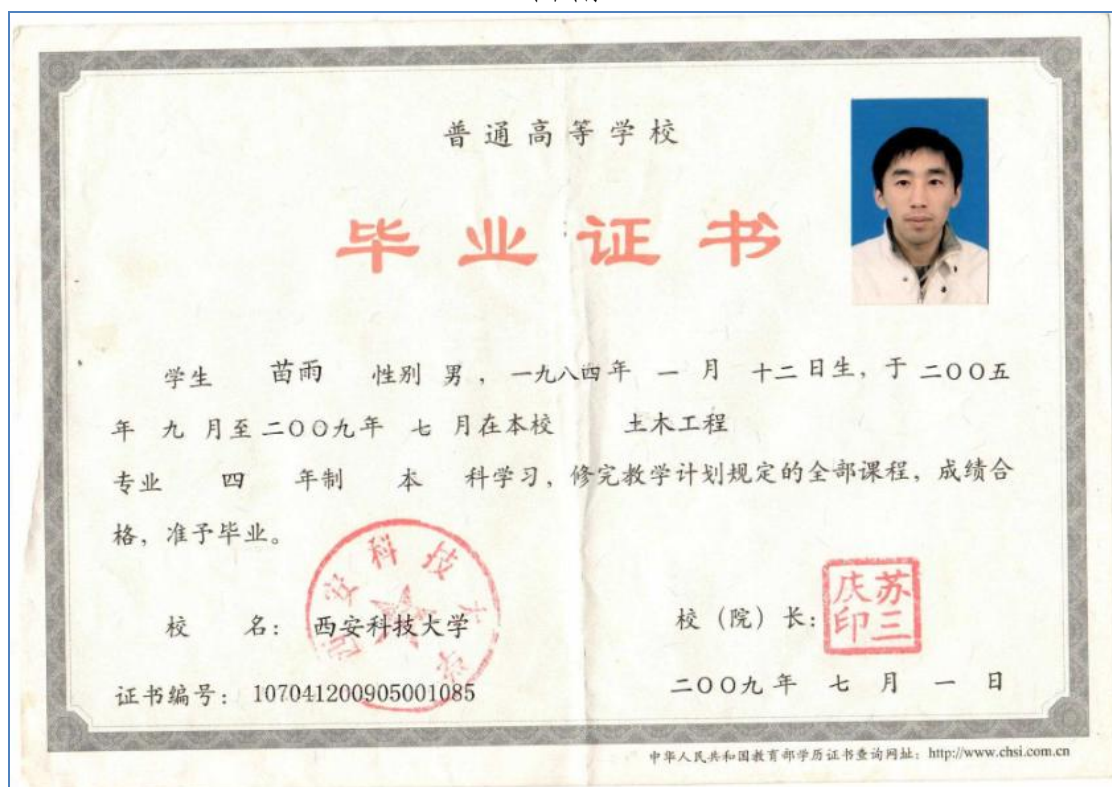 普通高等学校
毕业证书
学生 苗雨 性别 男，一九八四年 一 月 十二日生，于 二〇〇五
年 九 月至 二〇〇九年 七 月在本校 土木工程
专业 四 年制 本 科学习，修完教学计划规定的全部课程，成绩合
格，准予毕业。
西安科技大学
校 名： 西安科技大学
校（院）长：
苏三庆印
证书编号： 107041200905001085
二〇〇九 年 七 月 一 日
中华人民共和国教育部学历证书查询网址：http://www.chsi.com.cn